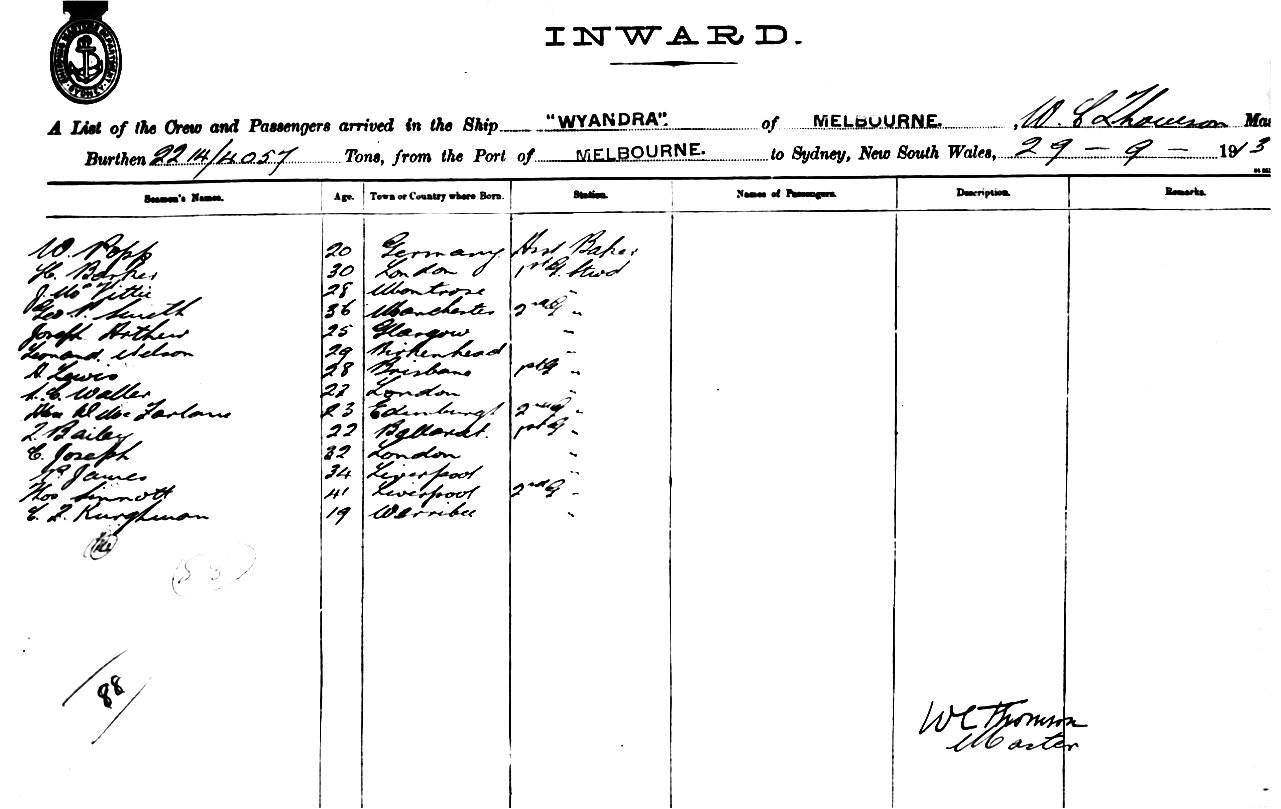 SHIPPING MASTER'S DEPARTMENT SYDNEY
INWARD.
A List of the Crew and Passengers arrived in the Ship "WYANDRA". of MELBOURNE. , W. C Thomson Mas
Burthen 2214/4057 Tons, from the Port of MELBOURNE. to Sydney, New South Wales, 29 - 9 - 1913
Seamen's Names. Age. Town or Country where Born. Station. Names of Passengers. Description. Remarks.
W. Popp 20 Germany Asst Baker
H. Barker 30 London 1st G. Stwd
J. McVittie 28 Montrose "
Geo P. Smith 36 Manchester 2nd G "
Joseph Arthur 25 Glasgow "
Leonard Nelson 29 Birkenhead "
A Lewis 28 Brisbane 1st G "
C. Waller 23 London "
Wm D McFarlane 23 Edinburgh 2nd G "
T. Bailey 22 Ballarat. 1st G "
C. Joseph 32 London "
P. James 34 Liverpool "
Thos Sinnott 41 Liverpool 2nd G "
C. F. Kurghman 19 Werribee "
88
W C Thomson
Master